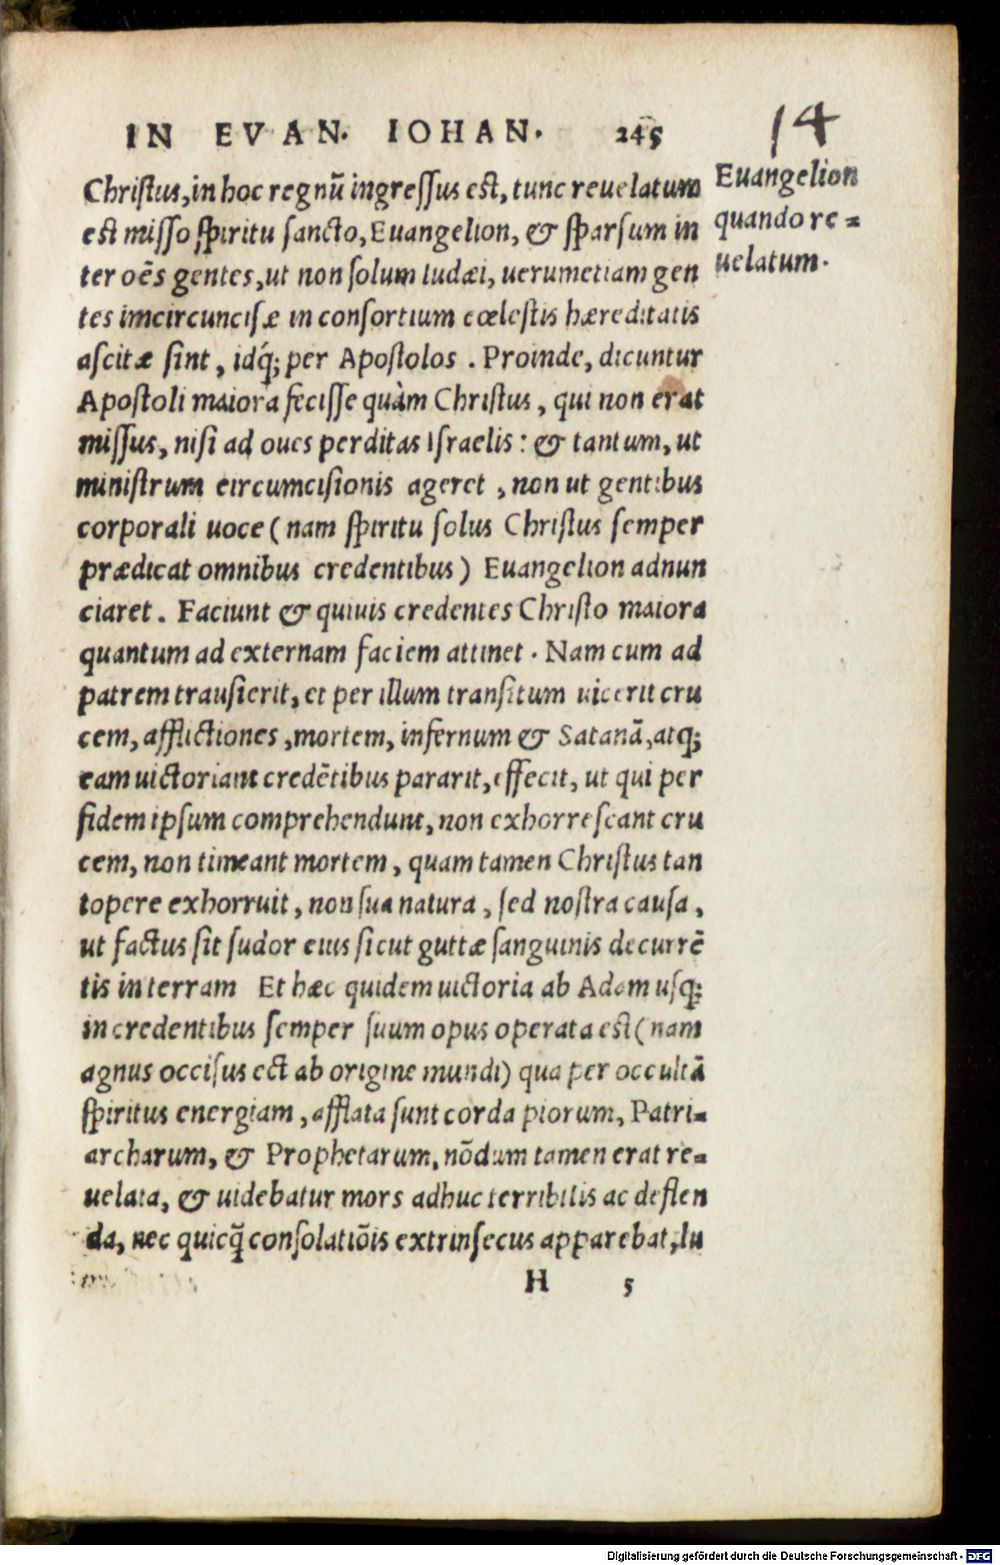 IN EVAN. IOHAN. 245
14
Christus, in hoc regnũ ingressus est, tunc reuelatum
est misso spiritu sancto, Euangelion, & sparsum in
ter oẽs gentes, ut non solum Iudæi, uerumetiam gen
tes imcircuncisæ in consortium cœlestis hæreditatis
ascitæ sint, idq́; per Apostolos. Proinde, dicuntur
Apostoli maiora fecisse quàm Christus, qui non erat
missus, nisi ad oues perditas Israelis: & tantum, ut
ministrum circumcisionis ageret, non ut gentibus
corporali uoce (nam spiritu solus Christus semper
prædicat omnibus credentibus) Euangelion adnun
ciaret. Faciunt & quiuis credentes Christo maiora
quantum ad externam faciem attinet. Nam cum ad
patrem transierit, et per illum transitum uicerit cru
cem, afflictiones, mortem, infernum & Satanã, atq;
eam uictoriam credẽtibus pararit, effecit, ut qui per
fidem ipsum comprehendunt, non exhorrescant cru
cem, non timeant mortem, quam tamen Christus tan
topere exhorruit, non sua natura, sed nostra causa,
ut factus sit sudor eius sicut guttæ sanguinis decurrẽ
tis in terram Et hæc quidem uictoria ab Adam usq;
in credentibus semper suum opus operata est (nam
agnus occisus est ab origine mundi) qua per occultã
spiritus energiam, afflata sunt corda piorum, Patri-
archarum, & Prophetarum, nõdum tamen erat re-
uelata, & uidebatur mors adhuc terribilis ac deflen
da, nec quicq̃ consolatiõis extrinsecus apparebat, lu
H 5
Euangelion
quando re-
uelatum.
Digitalisierung gefördert durch die Deutsche Forschungsgemeinschaft - DFG